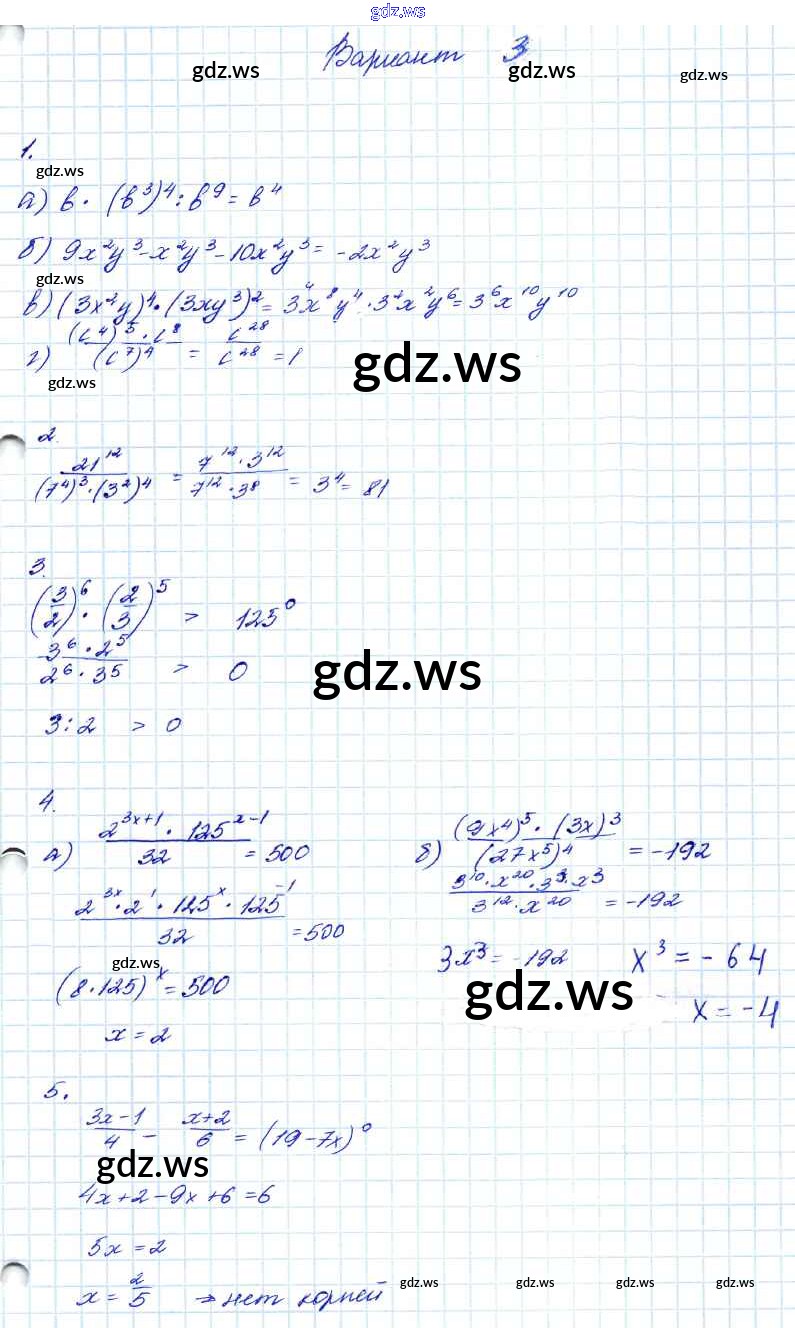 gdz.ws
Вариант 3
gdz.ws gdz.ws
1.
gdz.ws
а) b · (b³)⁴ : b⁹ = b⁴
б) 9x²y³ - x²y³ - 10x²y³ = -2x²y³
gdz.ws
в) (3x²y)⁴ · (3xy³)² = 3⁴x⁸y⁴ · 3²x²y⁶ = 3⁶x¹⁰y¹⁰
г) (c⁴)⁵ · c⁸ / (c⁷)⁴ = c²⁸ / c²⁸ = 1
gdz.ws
gdz.ws
2.
21¹² / (7⁴)³ · (3²)⁴ = 7¹² · 3¹² / 7¹² · 3⁸ = 3⁴ = 81
3.
(3/2)⁶ · (2/3)⁵ > 125⁰
3⁶ · 2⁵ / 2⁶ · 3⁵ > 0
gdz.ws
3 : 2 > 0
4.
а) 2³ˣ⁺¹ · 125ˣ⁻¹ / 32 = 500
2³ˣ · 2¹ · 125ˣ · 125⁻¹ / 32 = 500
gdz.ws
(8 · 125)ˣ = 500
x = 2
б) (9x⁴)⁵ · (3x)³ / (27x⁵)⁴ = -192
3¹⁰ · x²⁰ · 3³ · x³ / 3¹² · x²⁰ = -192
3x³ = -192 x³ = -64
gdz.ws
x = -4
5.
3x-1 / 4 - x+2 / 6 = (19-7x)⁰
gdz.ws
4x+2-9x+6=6
5x = 2
x = 2/5 → нет корней
gdz.ws gdz.ws gdz.ws